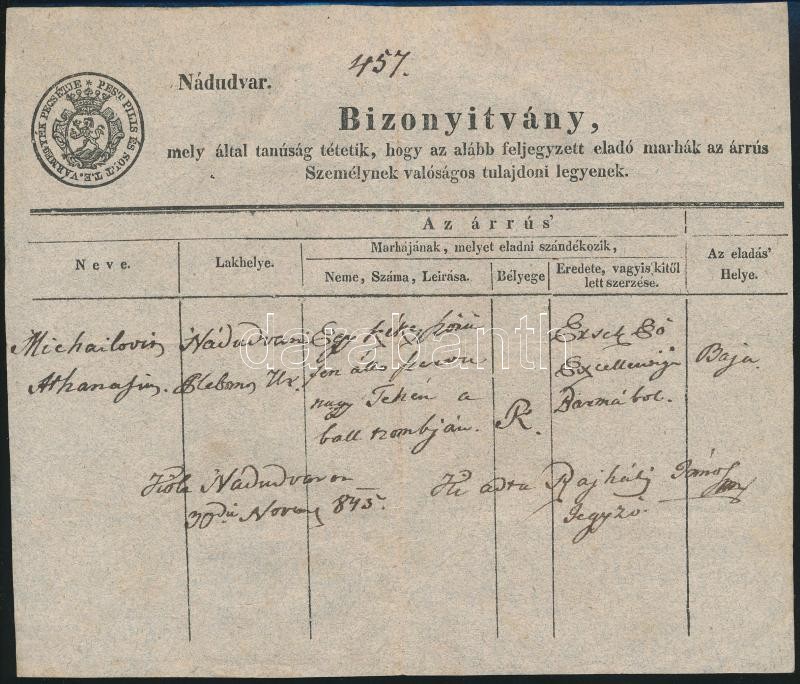 457.
Nádudvar.
VÁRMEGYÉK PECSÉTJE * PEST PILIS ÉS SOLT T.E.
Bizonyitvány,
mely által tanúság tétetik, hogy az alább feljegyzett eladó marhák az árrús
Személynek valóságos tulajdoni legyenek.
Az árrús'
Neve.
Lakhelye.
Marhájának, melyet eladni szándékozik,
Az eladás'
Helye.
Neme, Száma, Leirása.
Bélyege
Eredete, vagyis kitől
lett szerzése.
Michailovin
Athanasius.
Nádudvari
Plebonus Ur.
Egy kék szőrü
fen álló
nagy Tehén a
ball tzombján.
R.
Ersek Eő
Excellentiája
Barmából.
Baja.
darabanth
Költ Nádudvaron
30dik Novem 845.
Ki adta Rajháti János
Jegyző